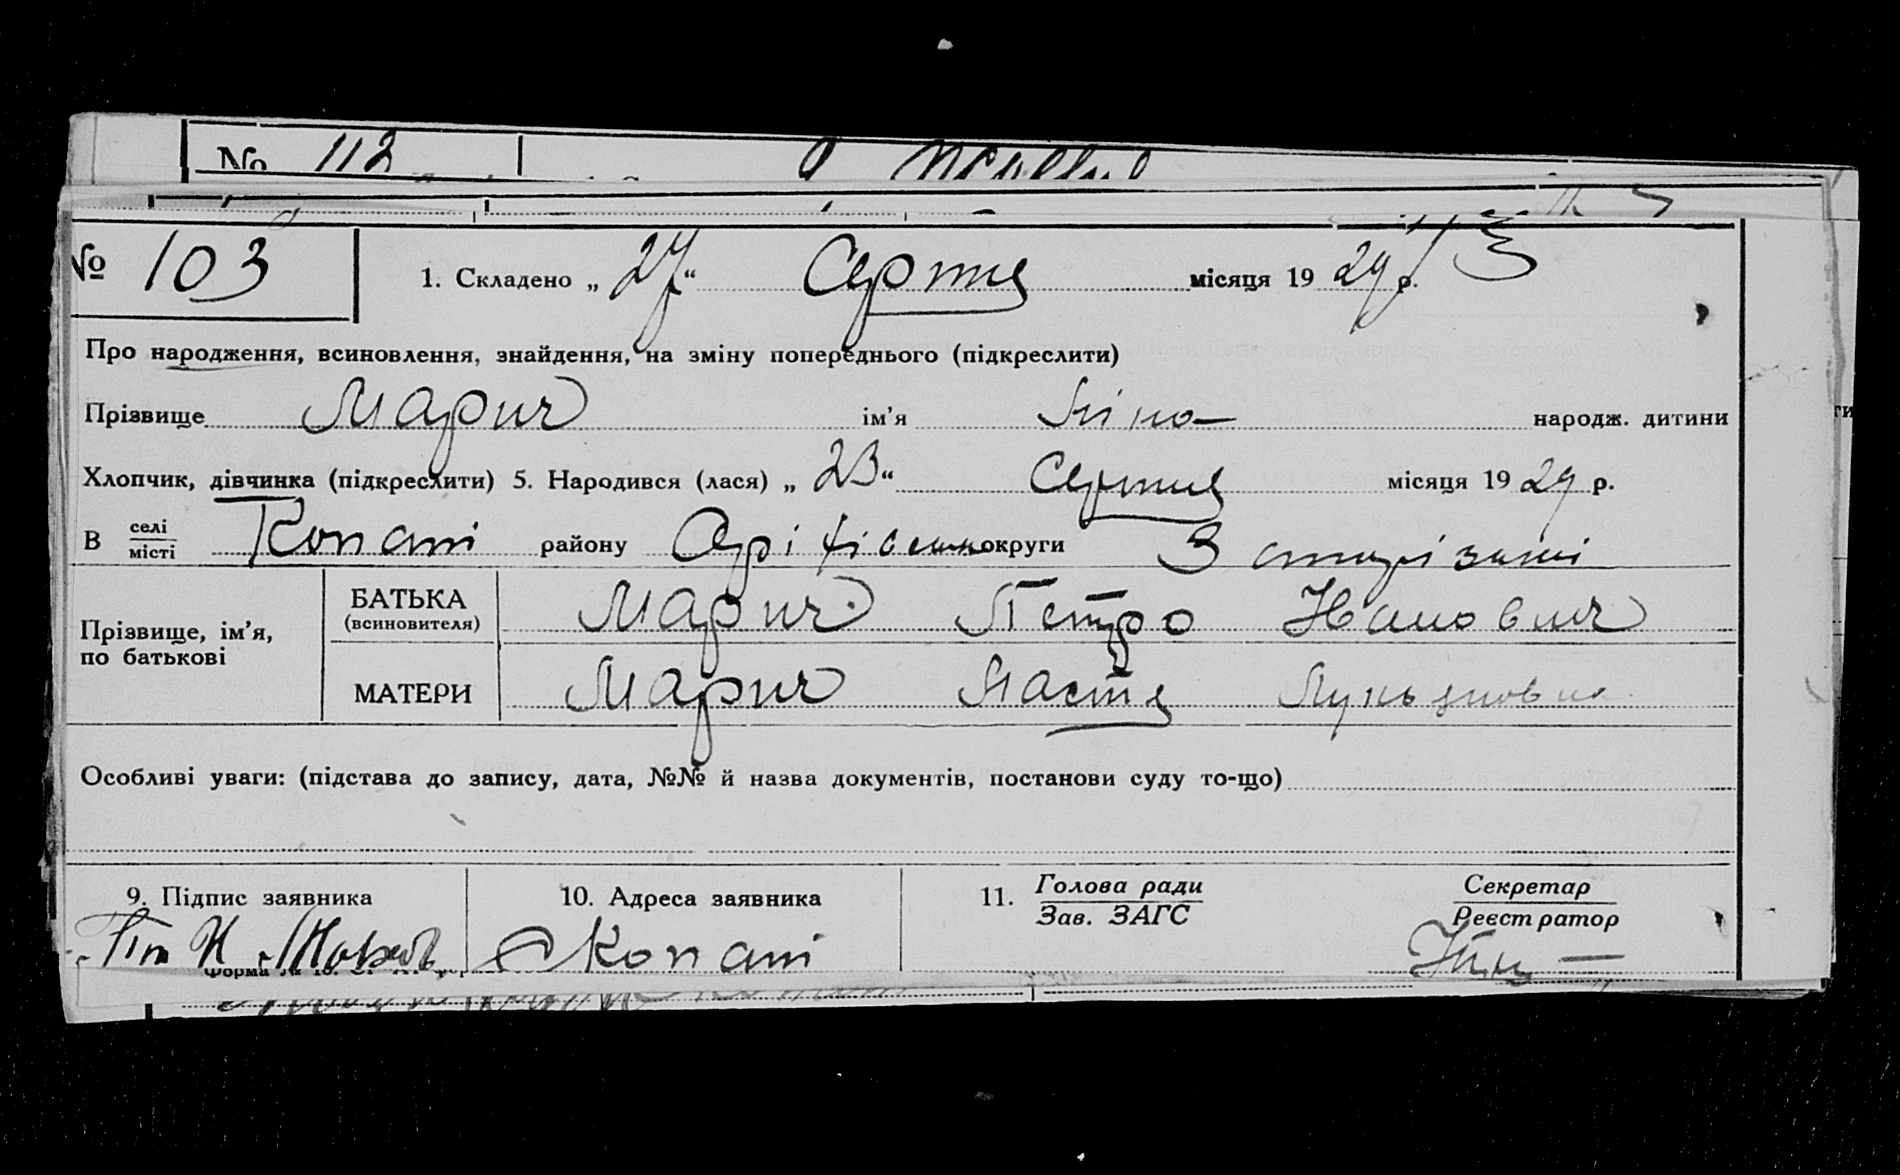 № 112
№ 103
1. Складено „ 27 “ Серпня місяця 19 29 р.
Про народження, всиновлення, знайдення, на зміну попереднього (підкреслити)
Прізвище Марич ім’я Ніна народж. дитини
Хлопчик, дівчинка (підкреслити) 5. Народився (лася) „ 23 “ Серпня місяця 19 29 р.
В селі/місті Копані району Оріхівськ округи Запоріжжі
Прізвище, ім’я, по батькові
БАТЬКА (всиновителя) Марич Петро Іванович
МАТЕРИ Марич Настя Лукьяновна
Особливі уваги: (підстава до запису, дата, №№ й назва документів, постанови суду то-що)
9. Підпис заявника 10. Адреса заявника 11. Голова ради / Зав. ЗАГС Секретар / Реєстратор
с Копані